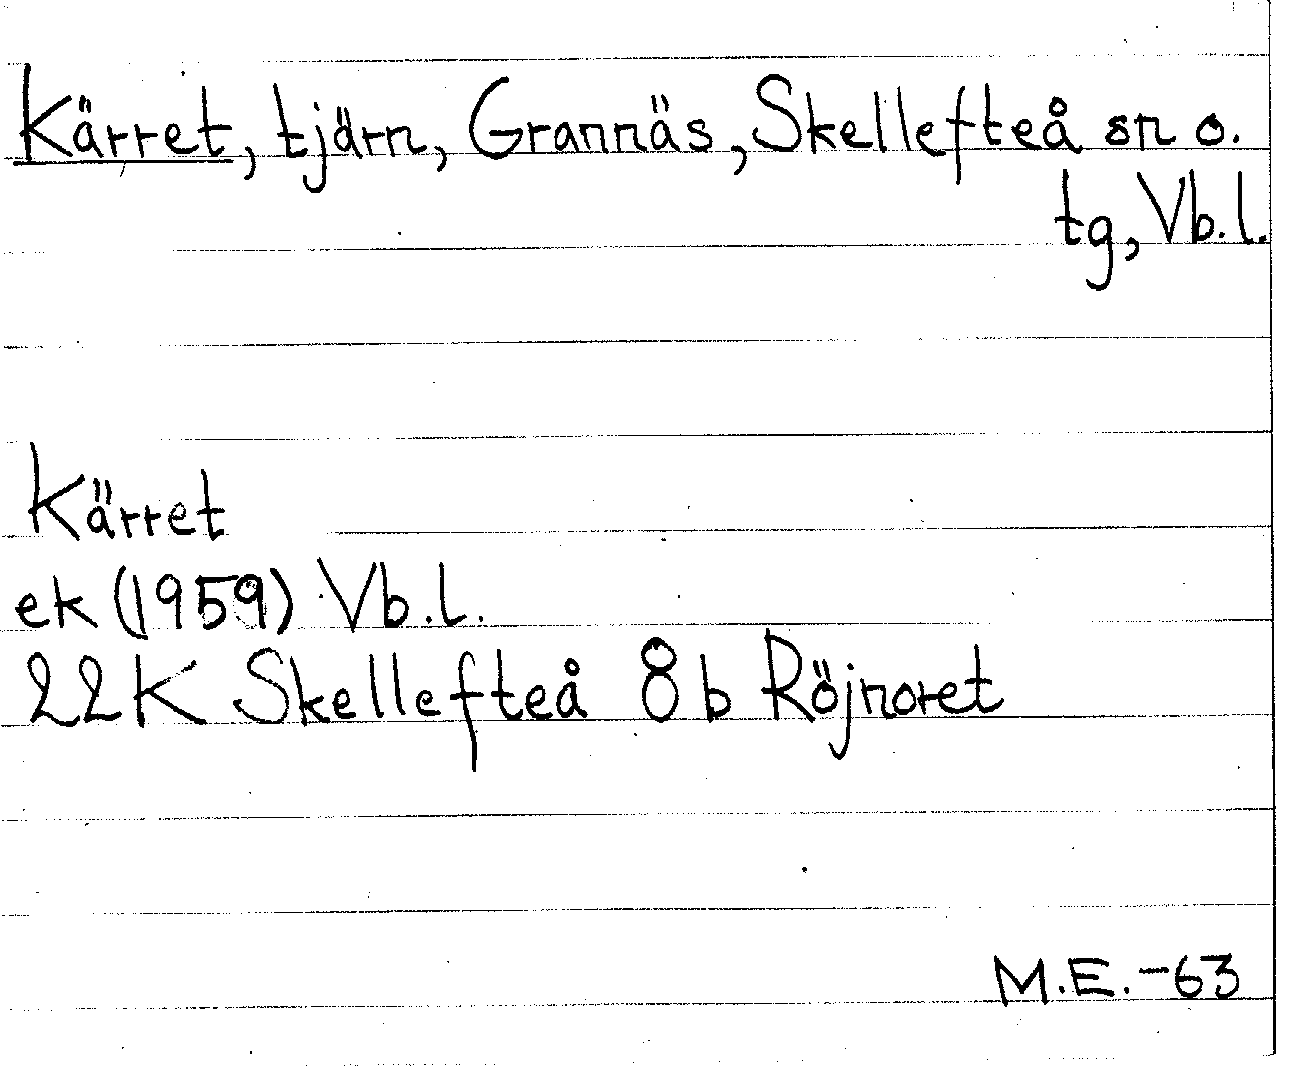 Kärret, tjärn, Grannäs, Skellefteå sn o.
tg, Vb.l.
Kärret
ek (1959) Vb.l.
22K Skellefteå 8b Röjnoret
M.E. -63